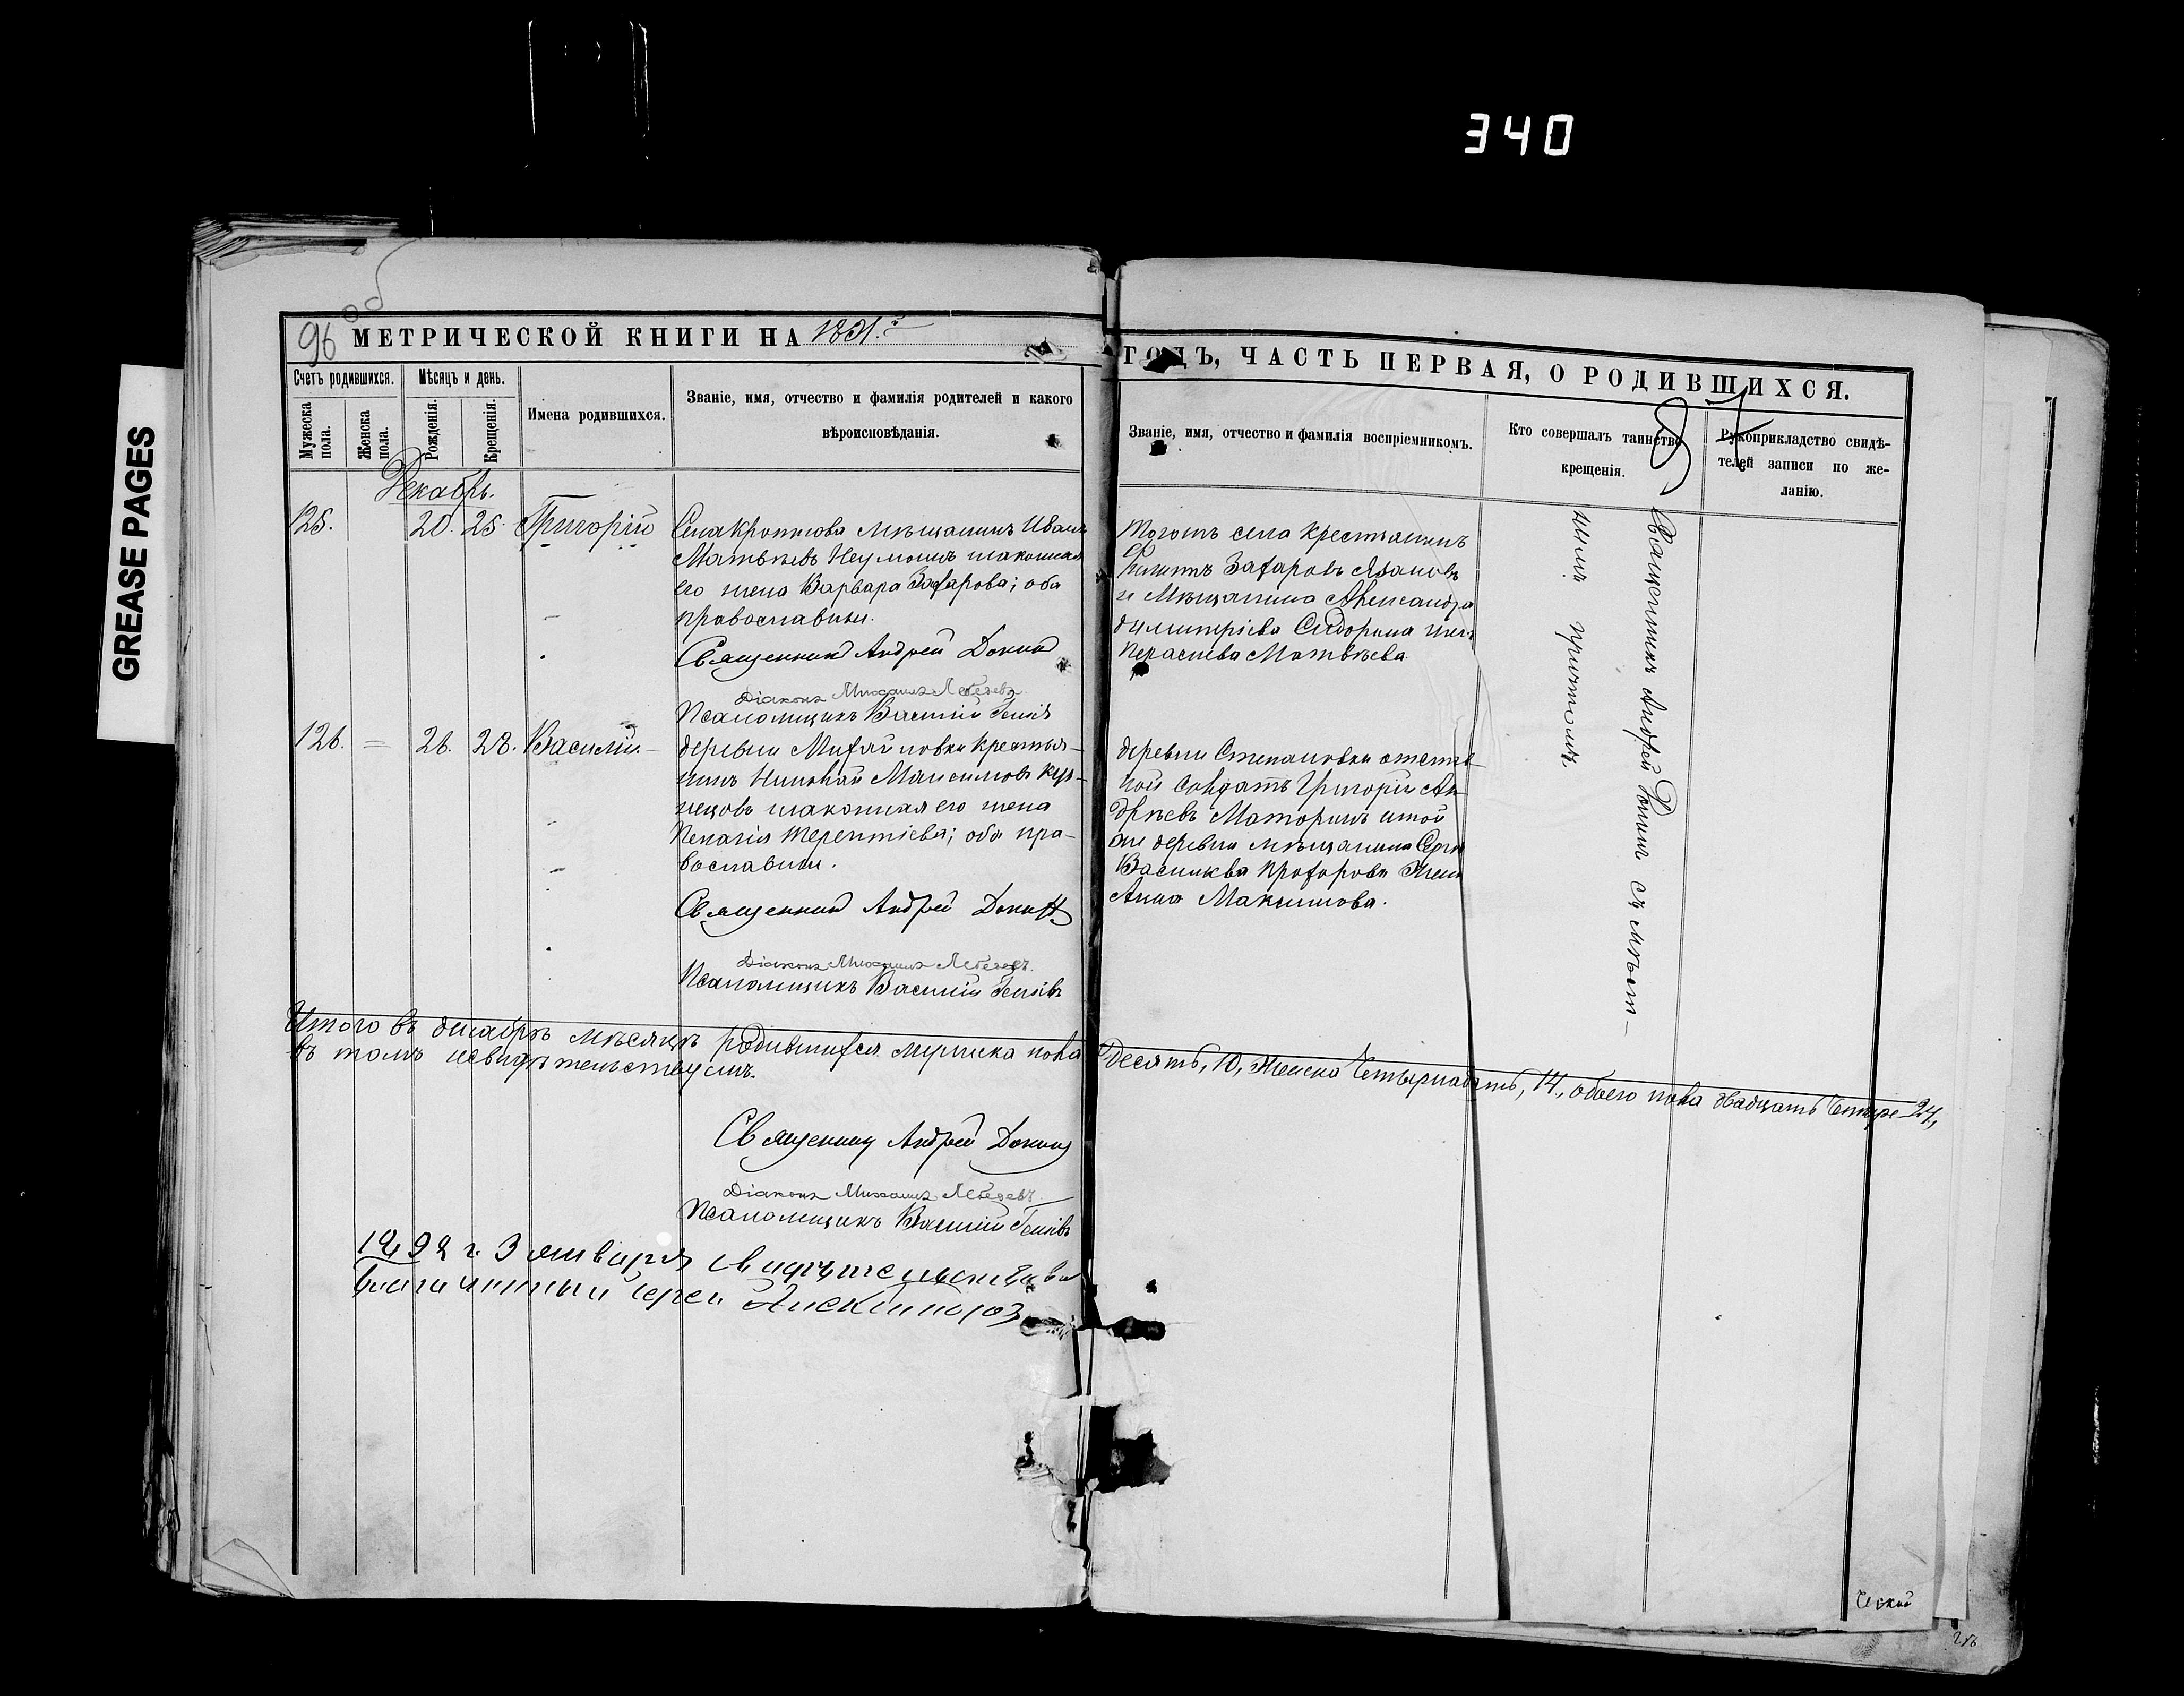 340
GREASE PAGES
96 об
МЕТРИЧЕСКОЙ КНИГИ НА 1891.й ГОДЪ, ЧАСТЬ ПЕРВАЯ, О РОДИВШИХСЯ.
Счетъ родившихся.
Мужеска пола.
Женска пола.
Мѣсяцъ и день.
Рожденія.
Крещенія.
Имена родившихся.
Званіе, имя, отчество и фамилія родителей и какого
вѣроисповѣданія.
Званіе, имя, отчество и фамилія воспріемниковъ.
Кто совершалъ таинство
крещенія.
Рукоприкладство свидѣ-
телей записи по же-
ланію.
Декабрь.
125. 20. 25. Григорій
Села мѣщанинъ Иванъ
Матвѣевъ законная
его жена Варвара Захарова; оба
православны.
Священникъ Андрей
Діаконъ Михаилъ Лебедевъ
Псаломщикъ Василій
Тогожъ села крестьянинъ
Захаровъ
и мѣщанина Александра
Димитріева Сидорина жена
Матвѣева
126. = 26. 28. Василій
деревни Михайловки крестья-
нинъ Николай Максимовъ Куз-
нецовъ законная его жена
Пелагія Терентіева; оба пра-
вославны.
Священникъ Андрей
Діаконъ Михаилъ Лебедевъ.
Псаломщикъ Василій
деревни Степановки отстав-
ной солдатъ Григорій Ан-
дрѣевъ Маторинъ и той
же деревни мѣщанина
Васильева Прохорова жена
Анна Максимова.
Священникъ Андрей съ мѣст-
нымъ причтомъ.
Итого въ декабрѣ мѣсяцѣ родившихся мужска пола десять, 10, женска четырнадцать, 14, обоего пола двадцать четыре 24,
въ томъ свидѣтельствуемъ.
Священникъ Андрей
Діаконъ Михаилъ Лебедевъ.
Псаломщикъ Василій
1892 г. 3 января свидѣтельствовал
благочинный іерей